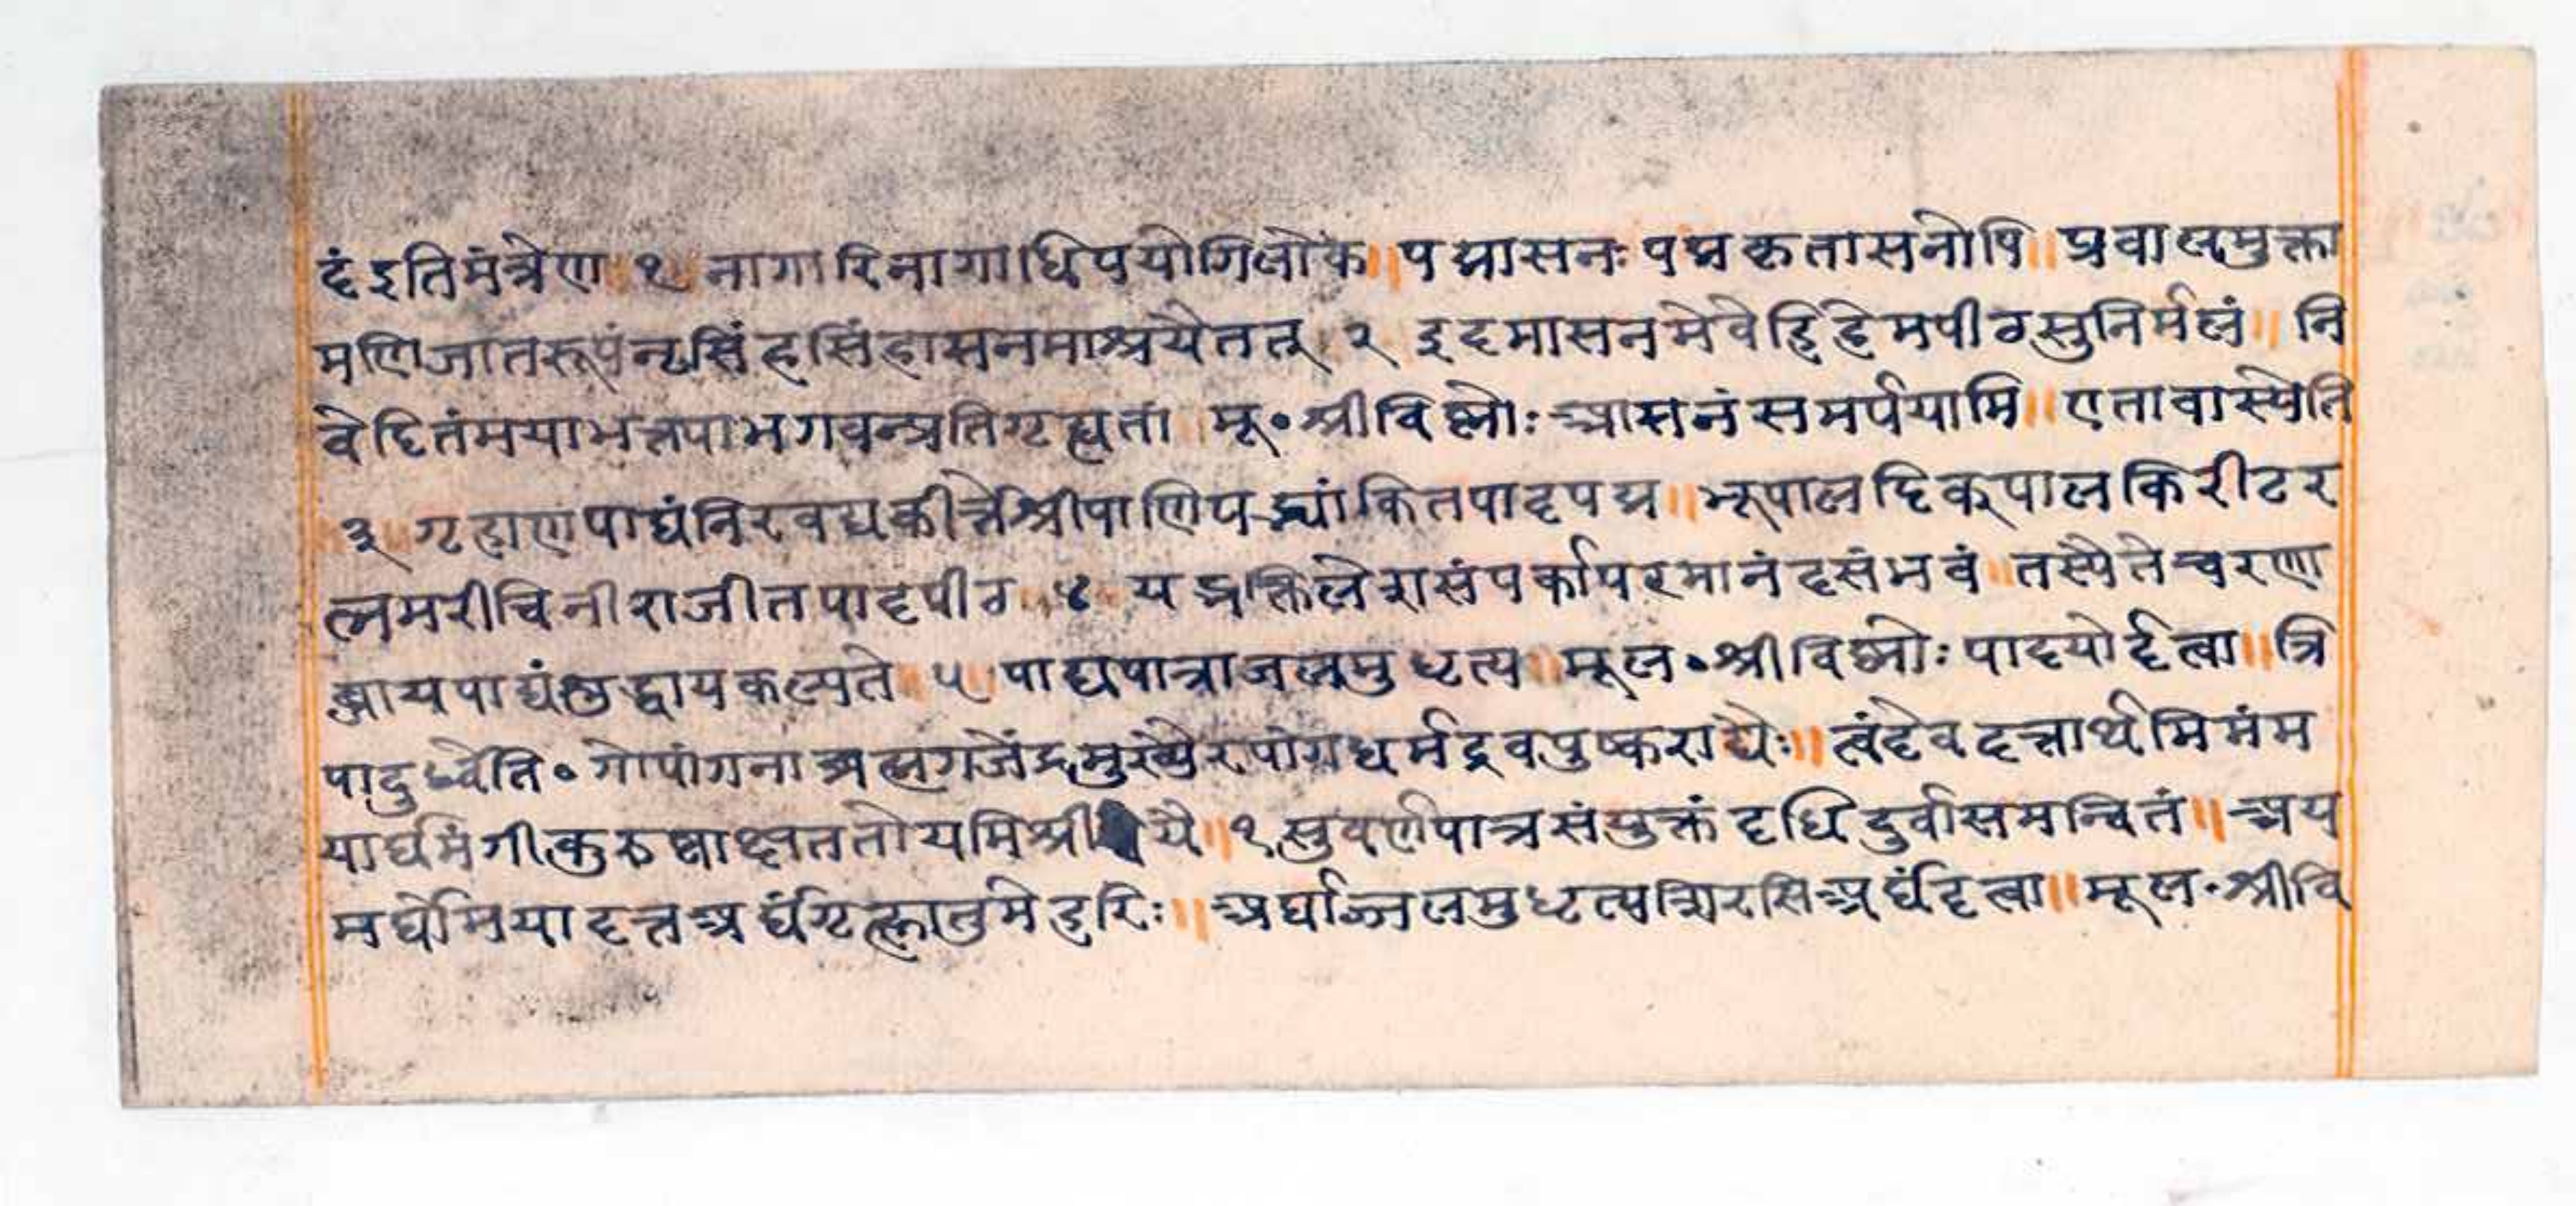 दंइतिमंत्रेण १ नागारिनागाधिपयोगिलोके॥पद्मासनःपद्मकृतासनोपि॥प्रवालमुक्ता
मणिजातरूपंनृसिंहसिंहासनमाश्रयैतत् २ इदमासनमेवेद्दिहेमपीठसुनिर्मलं॥नि
वेदितंमयाभक्त्यपाभगवन्प्रतिगृह्यतां॥मू॰श्रीविष्णोःआसनंसमर्पयामि॥एतावास्येति
३॥गृहाणपाद्यंनिरवद्यकीर्त्तेश्रीपाणिपद्मांकितपादपद्म॥भूपालदिक्पालकिरीटर
त्नमरीचिनीराजीतपादपीठ॥४॥यद्भक्तिलेशसंपर्कापरमानंदसंभवं॥तस्यैतेचरणा
ब्जायपाद्यंशुद्धायकल्पते॥५॥पाद्यपात्राजलमुधृत्य॥मूल॰श्रीविष्णोःपादयोर्दत्वा॥त्रि
पादुर्ध्वेति॰गोपांगनाअत्नगजेंद्रमुख्यैरपांगधर्मद्रवपुष्कराद्यैः॥त्वंदेवदत्तार्थमिमंम
यार्घमंगीकुरुष्वाक्षततोयमिश्री यै॥१सुवर्णपात्रसंयुक्तंदधिदुर्वासमन्वितं॥अय
मर्घोमयादत्तअर्घंगृह्णातुमेहरिः॥अर्घाज्जलमुधृत्यश्चिरसिअर्घंदत्वा॥मूल॰श्रीवि